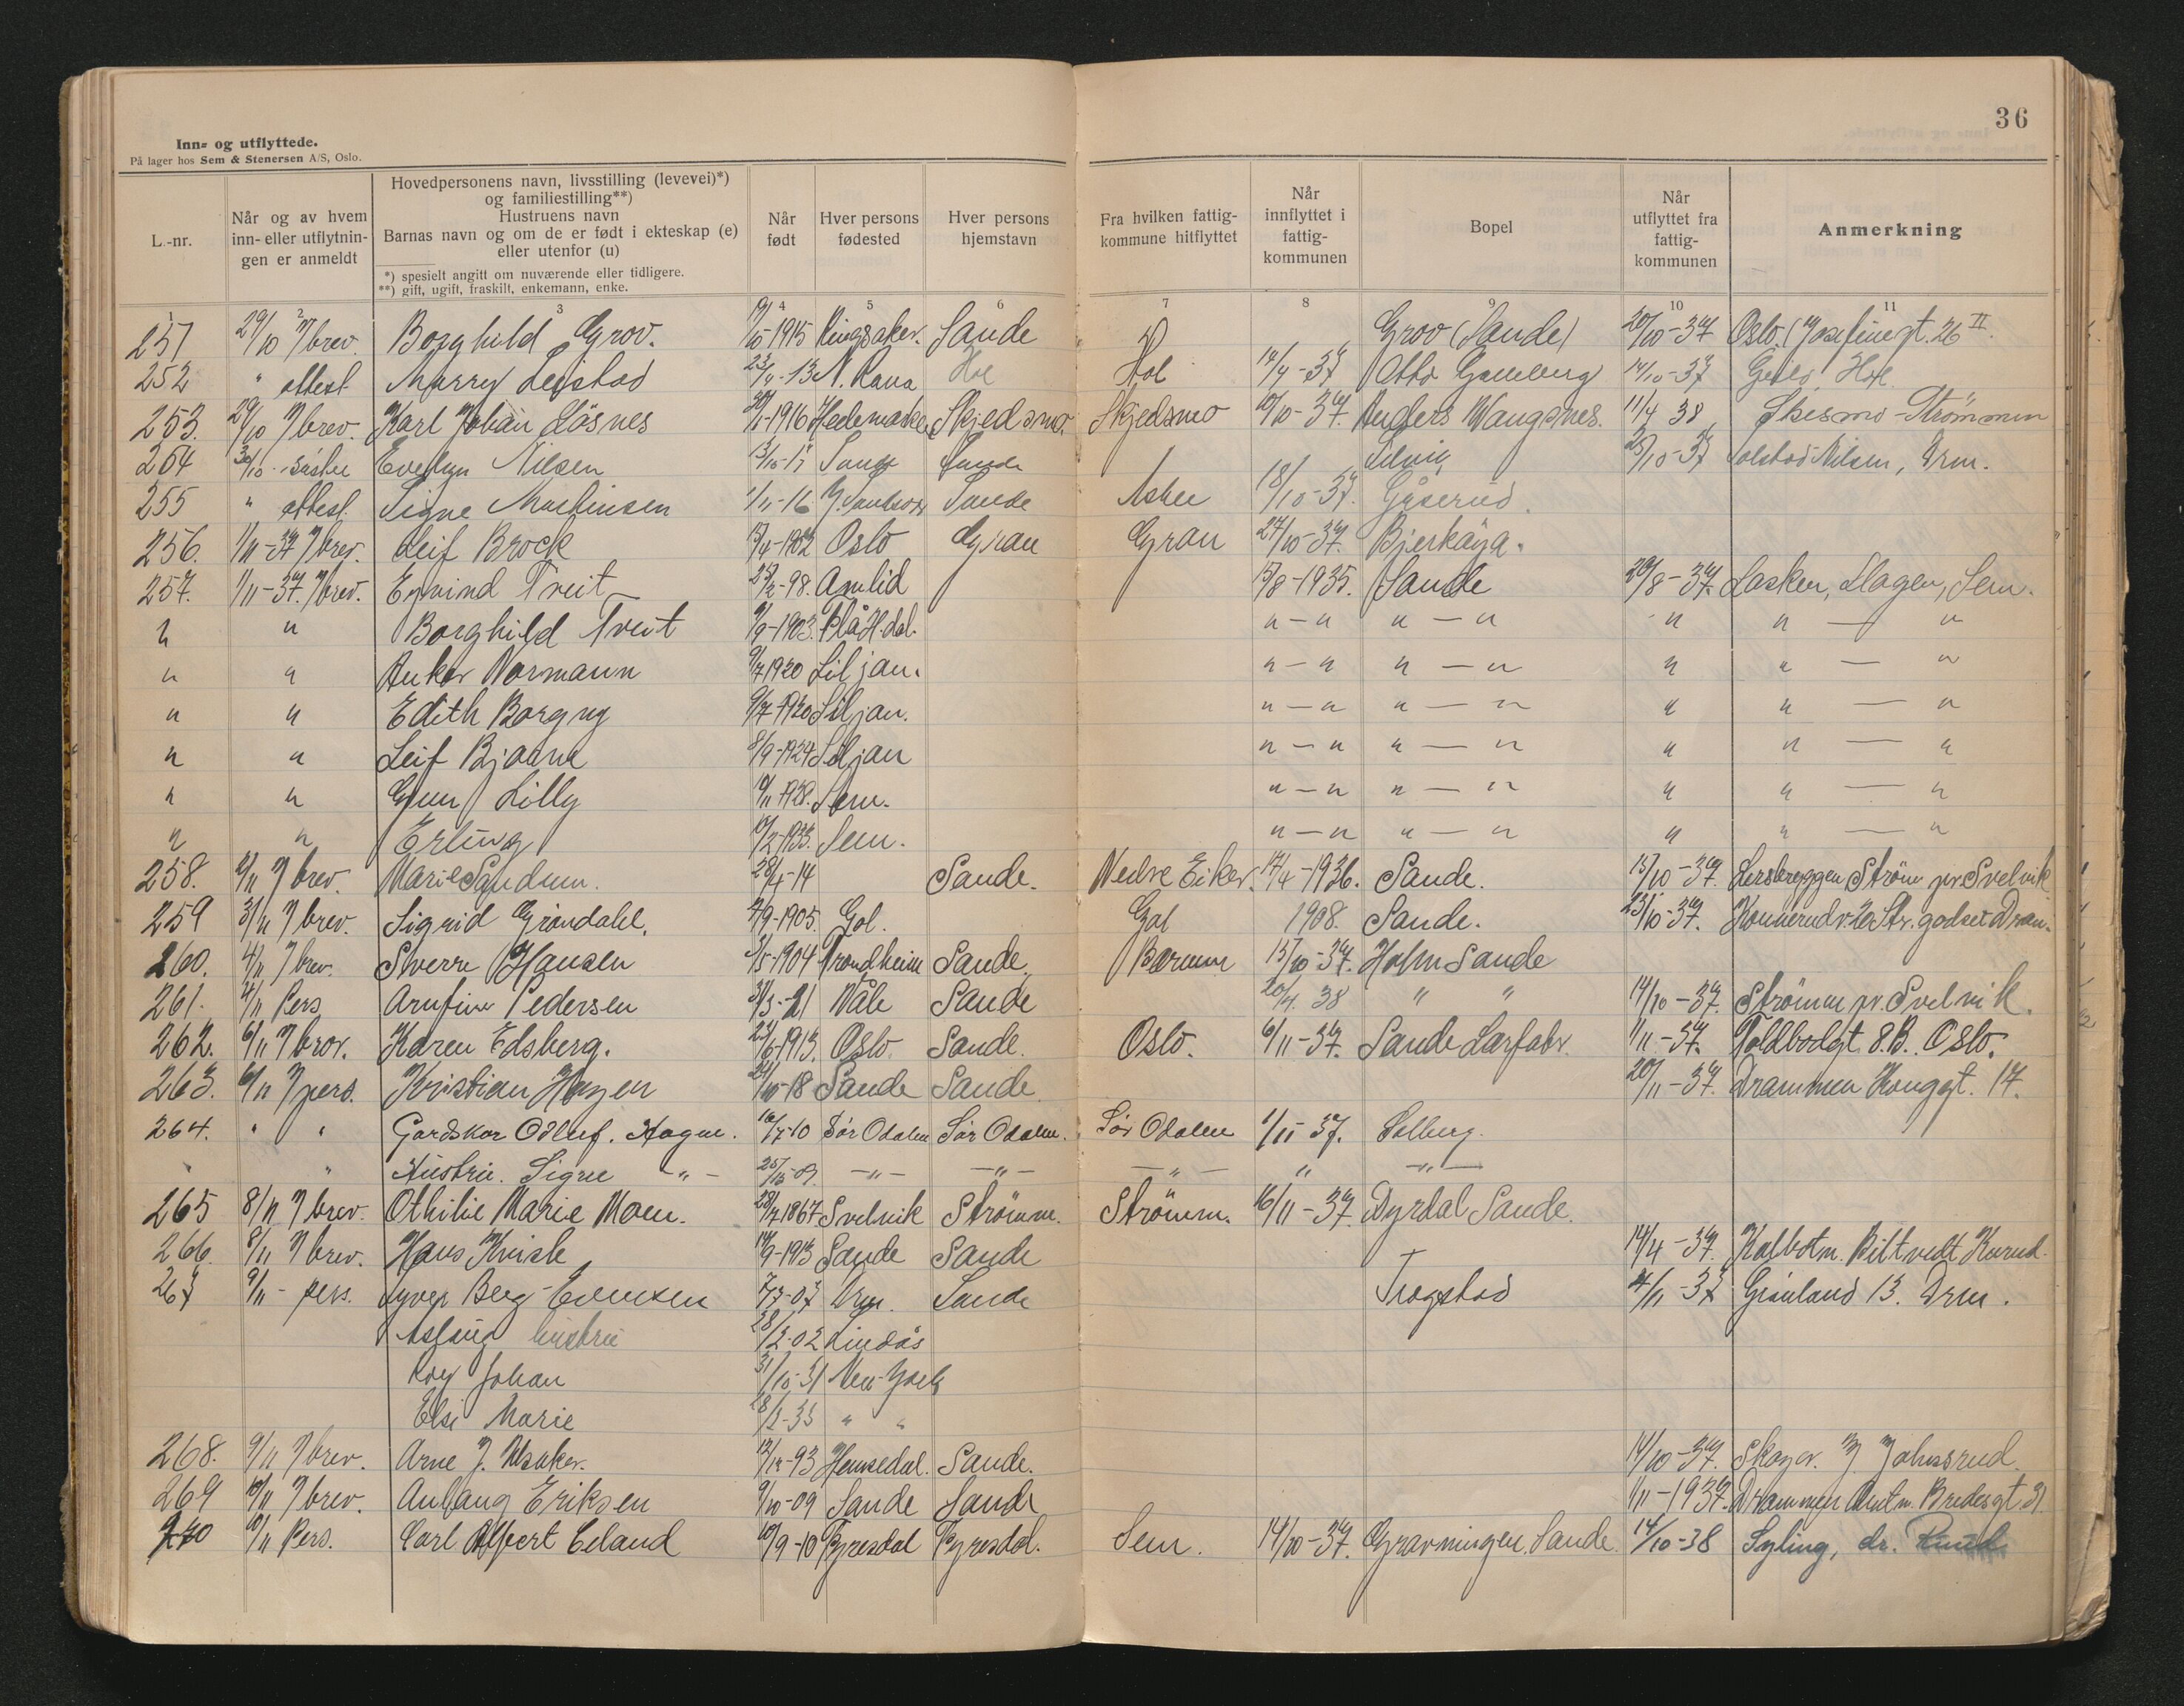 36
Inn- og utflyttede.
På lager hos Sem & Stenersen A/S, Oslo.
L.-nr.
Når og av hvem inn- eller utflytnin- gen er anmeldt
Hovedpersonens navn, livsstilling (levevei)*) og familiestilling**)
Hustruens navn
Barnas navn og om de er født i ekteskap (e) eller utenfor (u)
*) spesielt angitt om nuværende eller tidligere.
**) gift, ugift, fraskilt, enkemann, enke.
Når født
Hver persons fødested
Hver persons hjemstavn
Fra hvilken fattig- kommune hitflyttet
Når innflyttet i fattig- kommunen
Bopel
Når utflyttet fra fattig- kommunen
Anmerkning
1 2 3 4 5 6 7 8 9 10 11
251 29/10 brev. Borghild Grov. 1915 Ringsaker. Sande Grov (Sande) 20/10-37 Oslo. (Josefinegt. 26 II.
252 " attest Marry 13 N. Rana Hol Hol 14/4-37 Otto 14/10-37 Geilo, Hol
253. 29/10 brev. Karl Johan Løsnes 1916 Hedemarken Skjedsmo. Skjedsmo 10/10-37. Anders Wangsnes. 11/4 38 Skesmo-Strømmen
254 30/10 Evelyn Nilsen 13/10-17 Sande Selvik 25/10-37 Solstad Nilsen, Drm.
255 " attest. Signe Martinsen 1/11-16 Sande Asker 18/10-37. Gåserud.
256. 1/11-37 brev. Leif Brock 13/4-1902 Oslo Gran Gran 27/10-37. Bjerkøya.
257. 1/11-37. brev. Eyvind Tveit 25/2-98. Åmlid 15/8-1935. Sande 20/8-37. Lasken, Slagen, Sem.
" " Borghild Tveit 1903. Flå H.dal. "-" "-" " "-"
" " Anker Normann 9/7 1920 Siljan. "-" "-" " "-"
" " Edith Borgny 9/7-1920 Siljan. "-" "-" " "-"
" " Leif Bjarne 8/9-1924 Siljan "-" "-" " "-"
" " Gun Lilly 10/11-1928. Sem. "-" "-" " "-"
" " Erling 10/2-1933. Sem. "-" "-" " "-"
258. 2/11 brev. Marie Sandum. 28/4-14 Sande. Nedre Eiker. 17/4-1936. Sande. 15/10-37. Lersbryggen Strøm pr. Svelvik
259 3/11 brev. Sigrid Grøndahl. 7/9-1905. Gol. Gol 1908. Sande. 23/10-37. Konnerudv. 20 Str. godset Dram.
260. 4/11 brev. Sverre Hansen 3/5-1904 Trondheim Sande. Bærum 15/10-37. Holm Sande
261. 4/11 Pers Arnfinn Pedersen 31/3-21 Våle Sande 20/4. 38 " " 14/10-37. Strømm pr. Svelvik.
262. 6/11 brev. Karen Edsberg. 22/6-1913. Oslo Sande. Oslo. 6/11-37. Sande Lærfabr. 1/11-37. Toldbodgt. 8.B. Oslo.
263. 6/11 pers. Kristian Hagen 24/10-18 Sande Sande. 20/11-37. Drammen Konggt. 17.
264. " " Gardskar Odluf. Hagen. 16/7-10 Sør Odalen Sør Odalen. Sør Odalen 1/11-37. Solberg.
" " Hustru. Signe -"- 25/10-09. -"- -"- -"- " -"-
265 8/11 brev. Othilie Marie Moen. 28/7 1867 Svelvik Strømm. Strømm. 16/11-37. Dyrdal Sande.
266. 8/11 brev. Hans Kvisle 14/9-1913 Sande Sande 14/4-37. Kolbotn. Biltvedt
267 9/11- pers. Syver Berg-Evensen 7/7-07 Drm. Sande Trogstad 4/11-37 Grønland 13. Drm.
Aslaug hustru 28/12-02 Lindås
Roy Johan 31/10-31 New-York
Elsi Marie 28/2-35 " "
268. 9/11 brev. Arne J. 12/12-93 Hemsedal. Sande. 14/10-37. Skoger. Johnsrud.
269 10/11 brev. Anlaug Eriksen 9/10-09 Sande Sande 1/11-1937. Drammen Amtm. Bredesgt 21
270 10/11 Pers. Carl Alfert Eeland 10/9-10 Fyresdal Fyresdal. Sem. 14/10-37. Gravningen. Sande. 14/10-38 Sylling, dr.